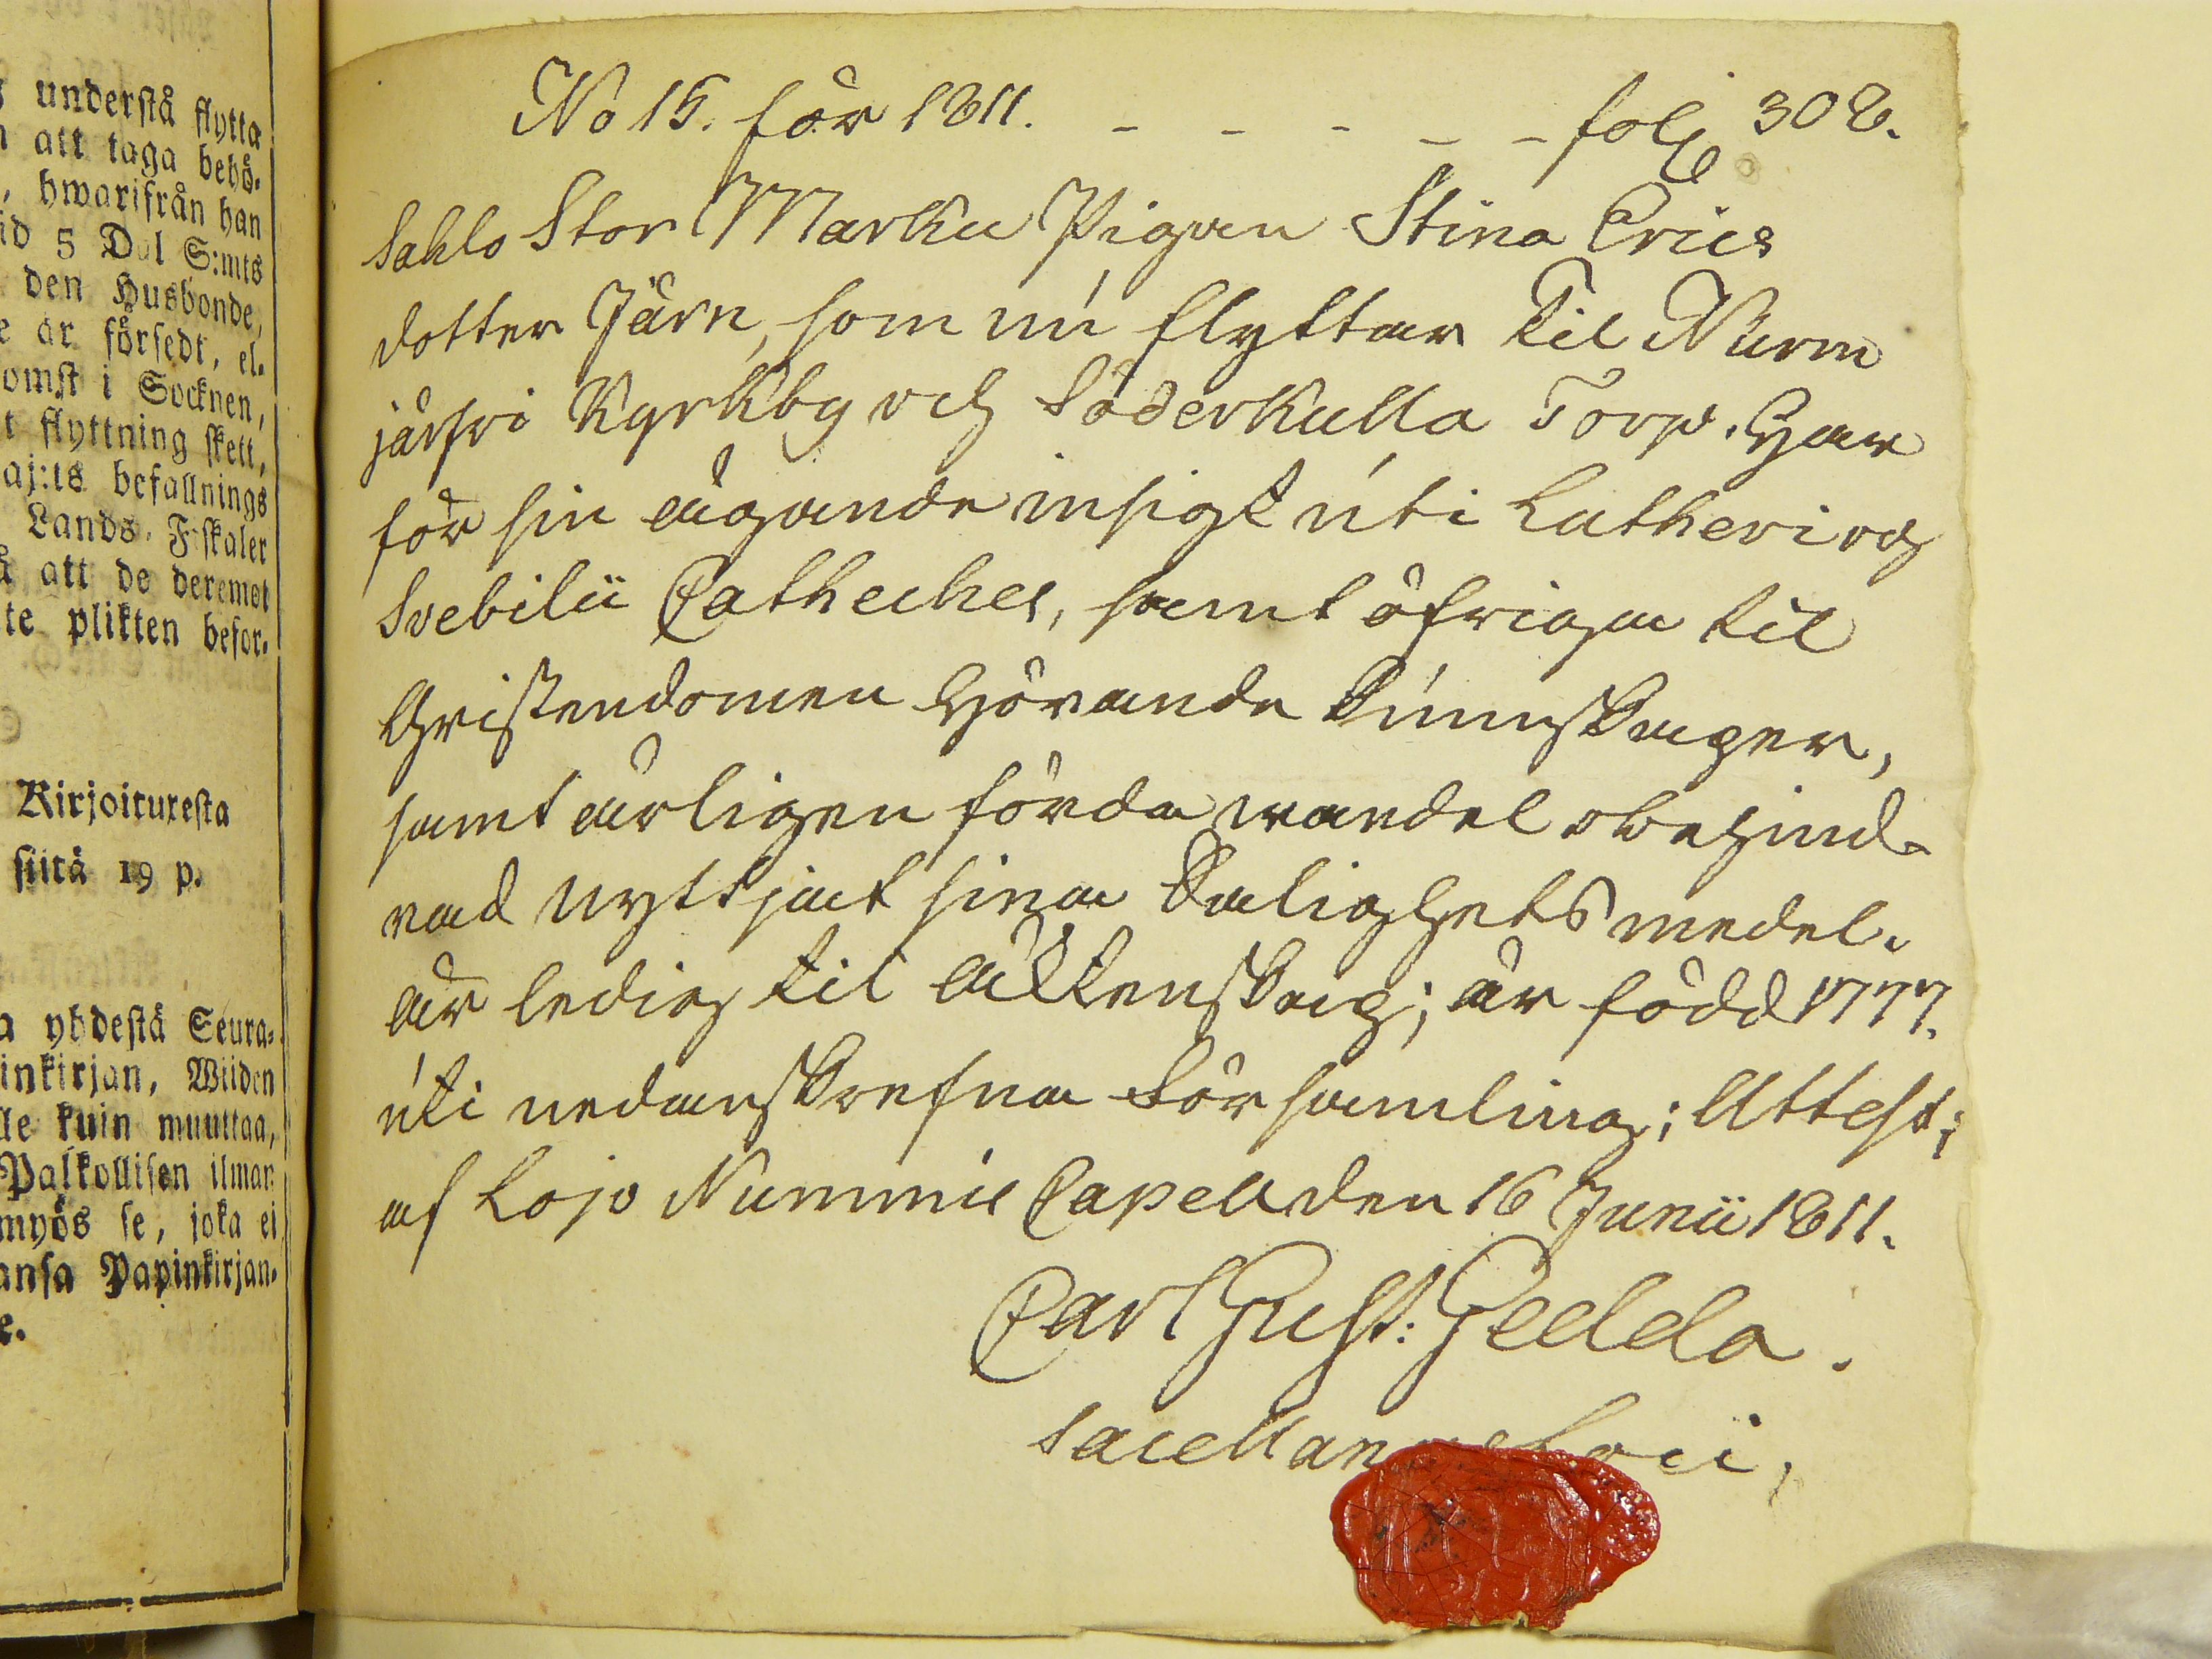 understå flytta
att taga behö-
, hwarifrån han
id 5 Dal S:mts
den Husbonde,
e är försedt, el-
omst i Socknen,
t flyttning skett,
aj:ts befallnings
Lands-Fiskaler
å att de deremot
te plikten befor-
Kirjoituxesta
siitä 19 p.
a yhdestä Seura-
inkirjan, Wiiden
lle kuin muuttaa,
Palkollisen ilman
myös se, joka ei
ansa Papinkirjan-
e.
No 15. för 1811. - - - - - fol: 308.
Sahlo Stor Marku Pigan Stina Erics
dotter Järn, som nu flyttar til Nurm
järfvi Kyrkby och Söderkulla Torp. Har
för sin ägande insigt uti Lutheri och
Svebilii Catheches, samt öfriga til
Christendomen hörande kunskaper,
samt ärligen förda wandel obehind-
rad nyttjat sina Salighets medel.
är ledig til äktenskap; är född 1777.
uti nedanskrefna Församling; Attest:
af Lojo Nummis Capell den 16 Junii 1811.
Carl Gust: Gedda.
Sacellanus Loci,